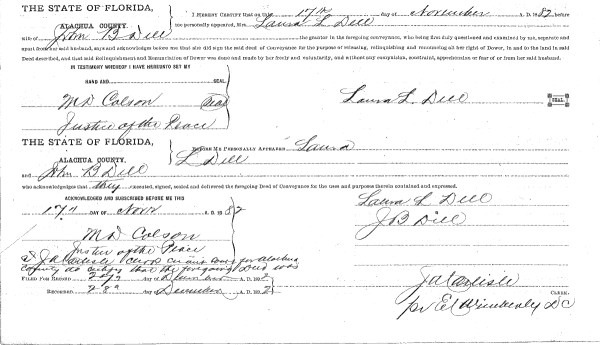 THE STATE OF FLORIDA,
ALACHUA COUNTY.
I HEREBY CERTIFY that on this 17th day of November A. D. 1882, before
me personally appeared, Mrs. Laura L Dell
wife of John B Dell the grantor in the foregoing conveyance, who being first duly questioned and examined by me, separate and
apart from her said husband, says and acknowledges before me that she did sign the said deed of Conveyance for the purpose of releasing, relinquishing and renouncing all her right of Dower, in and to the land in said
Deed described, and that said Relinquishment and Renunciation of Dower was done and made by her freely and voluntarily, and without any compulsion, constraint, apprehension or fear of or from her said husband.
IN TESTIMONY WHEREOF I HAVE HEREUNTO SET MY
HAND AND SEAL
M D Colson Seal
Laura L. Dell SEAL.
Justice of the Peace
THE STATE OF FLORIDA,
ALACHUA COUNTY,
BEFORE ME PERSONALLY APPEARED Laura
L Dell
and John B Dell
who acknowledges that they executed, signed, sealed and delivered the foregoing Deed of Conveyance for the uses and purposes therein contained and expressed.
ACKNOWLEDGED AND SUBSCRIBED BEFORE ME THIS
17th DAY OF Nov A. D. 1882
Laura L Dell
J B Dell
M D Colson
Justice of the Peace
I J A Carlisle Clerk Circuit Court for Alachua
County do certify that the foregoing Deed was
FILED FOR RECORD day of A. D. 188
RECORDED 28th day of December A. D. 1882
J A Carlisle
CLERK.
pr E L Wimberly D C